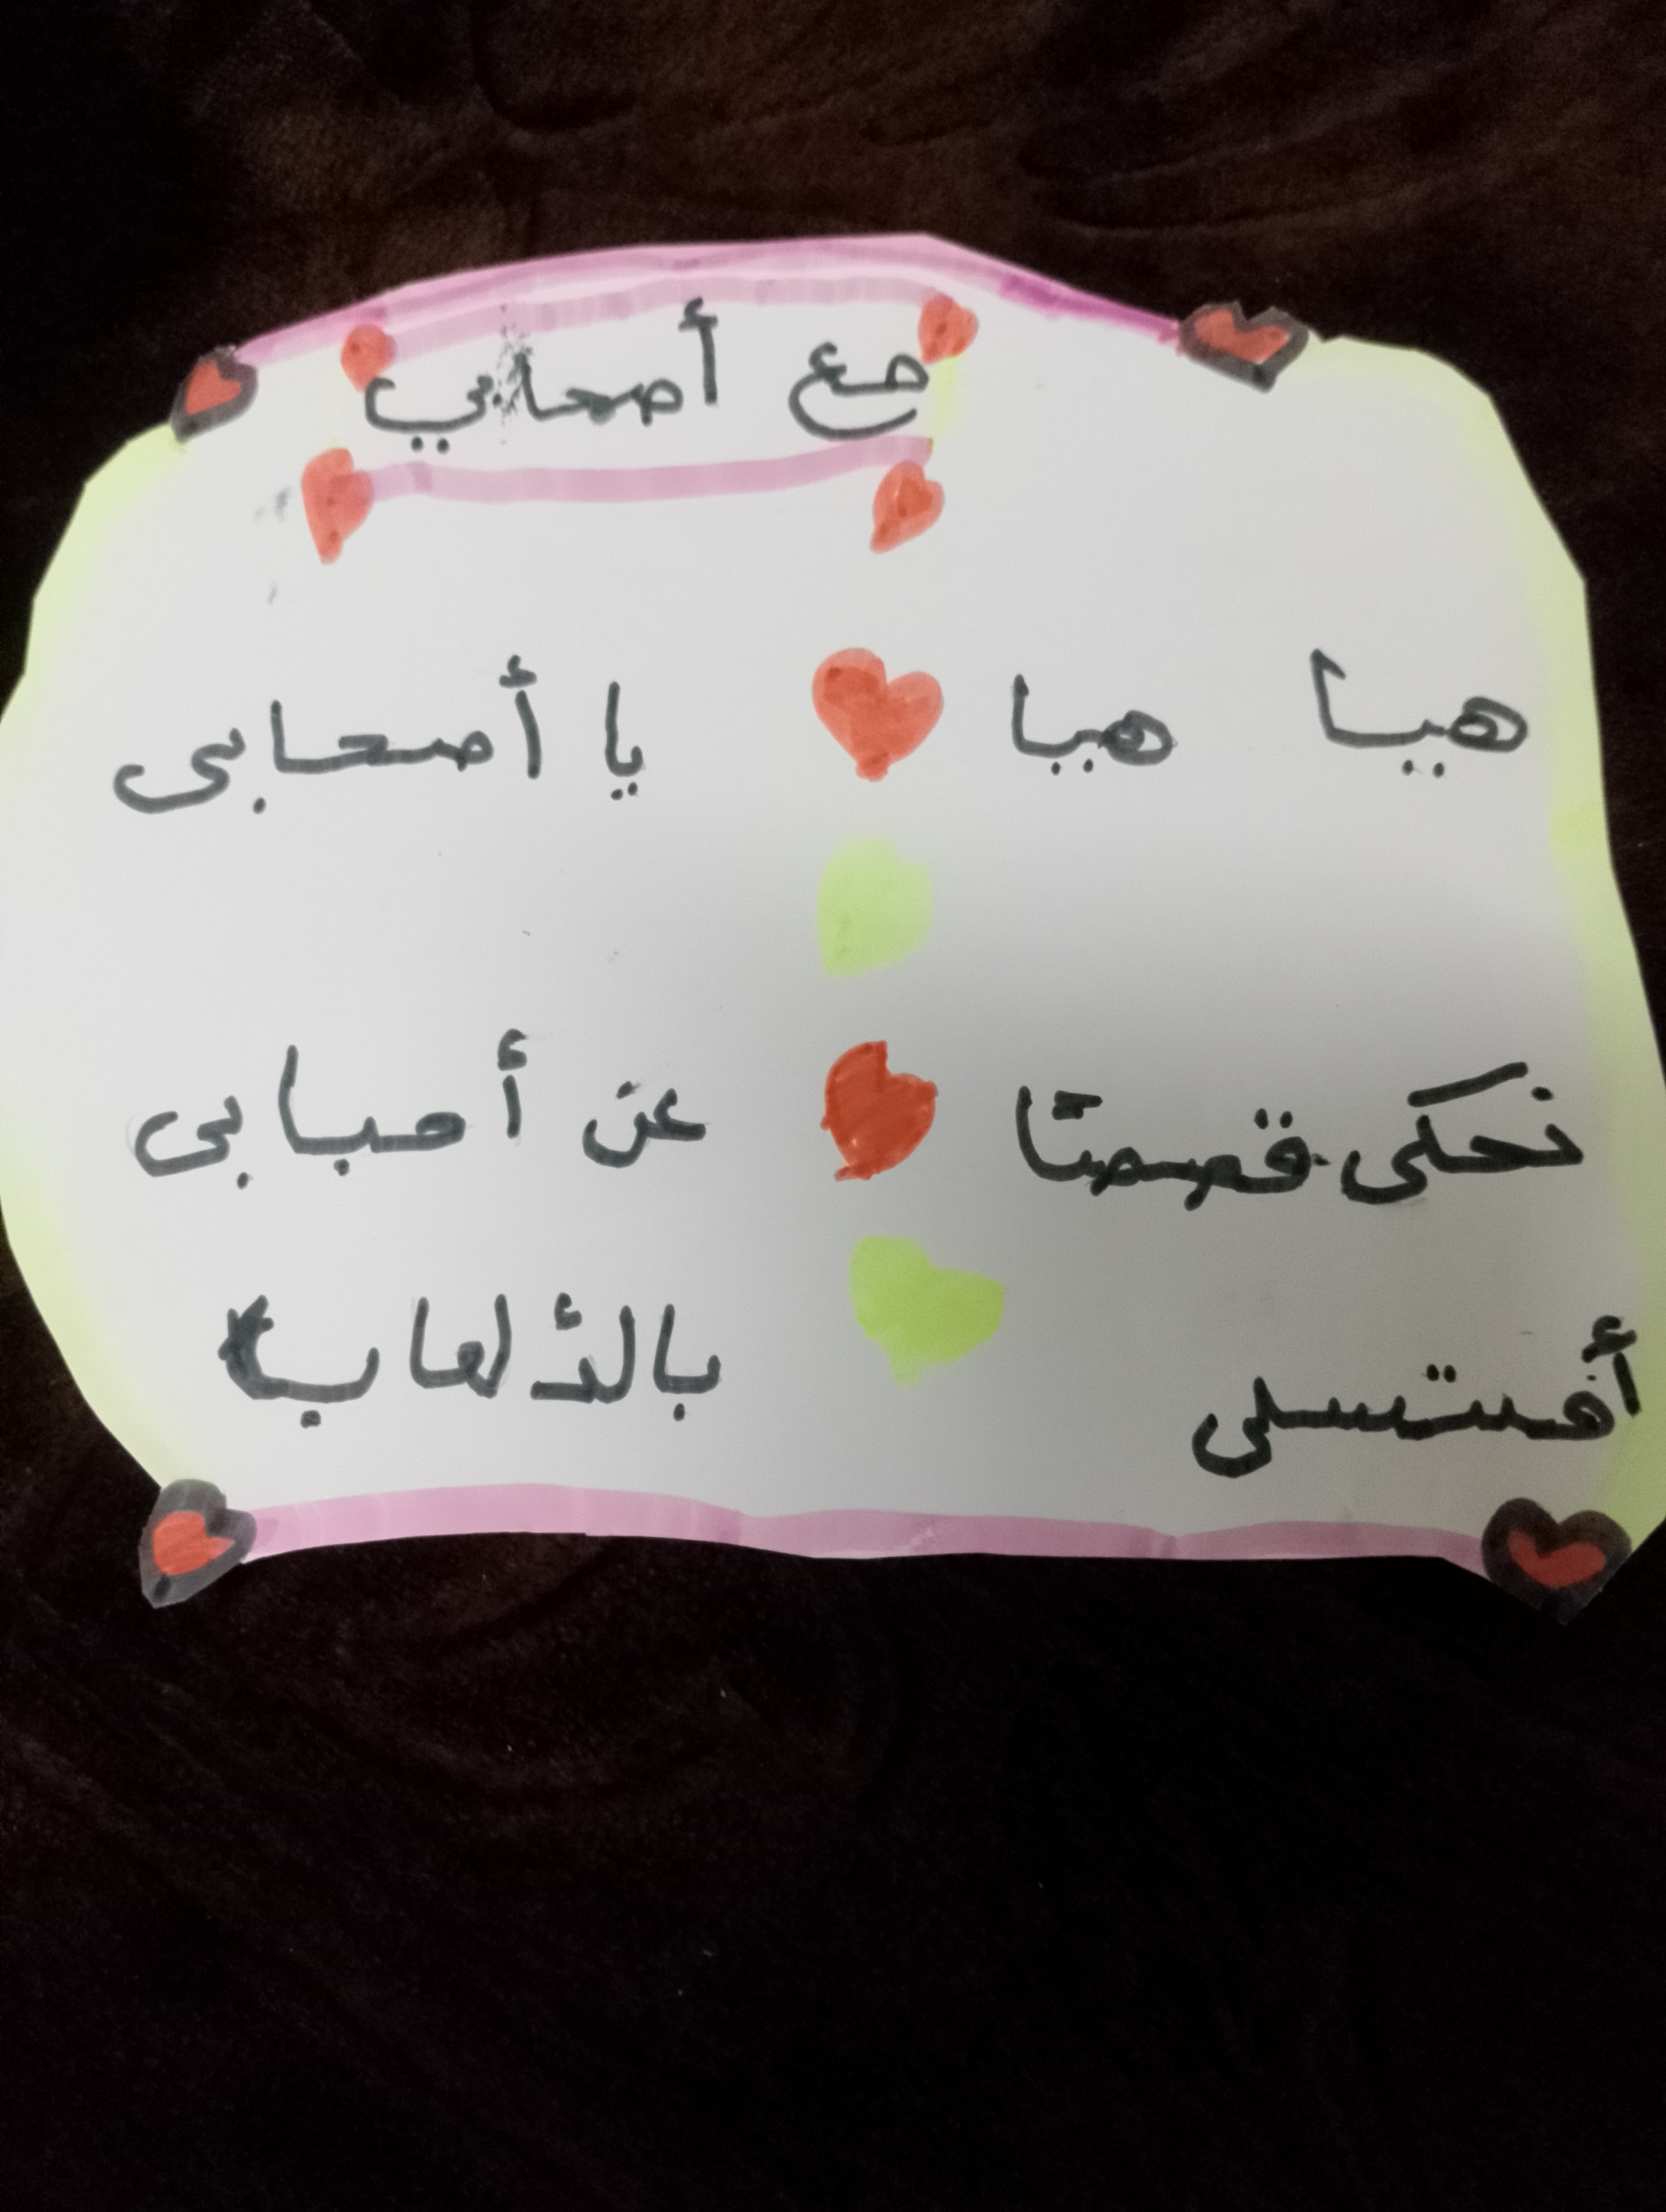 مع أصحابي
هيا هيا يا أصحابى
نحكى قصصتا عن أحبابى
بالألعاب